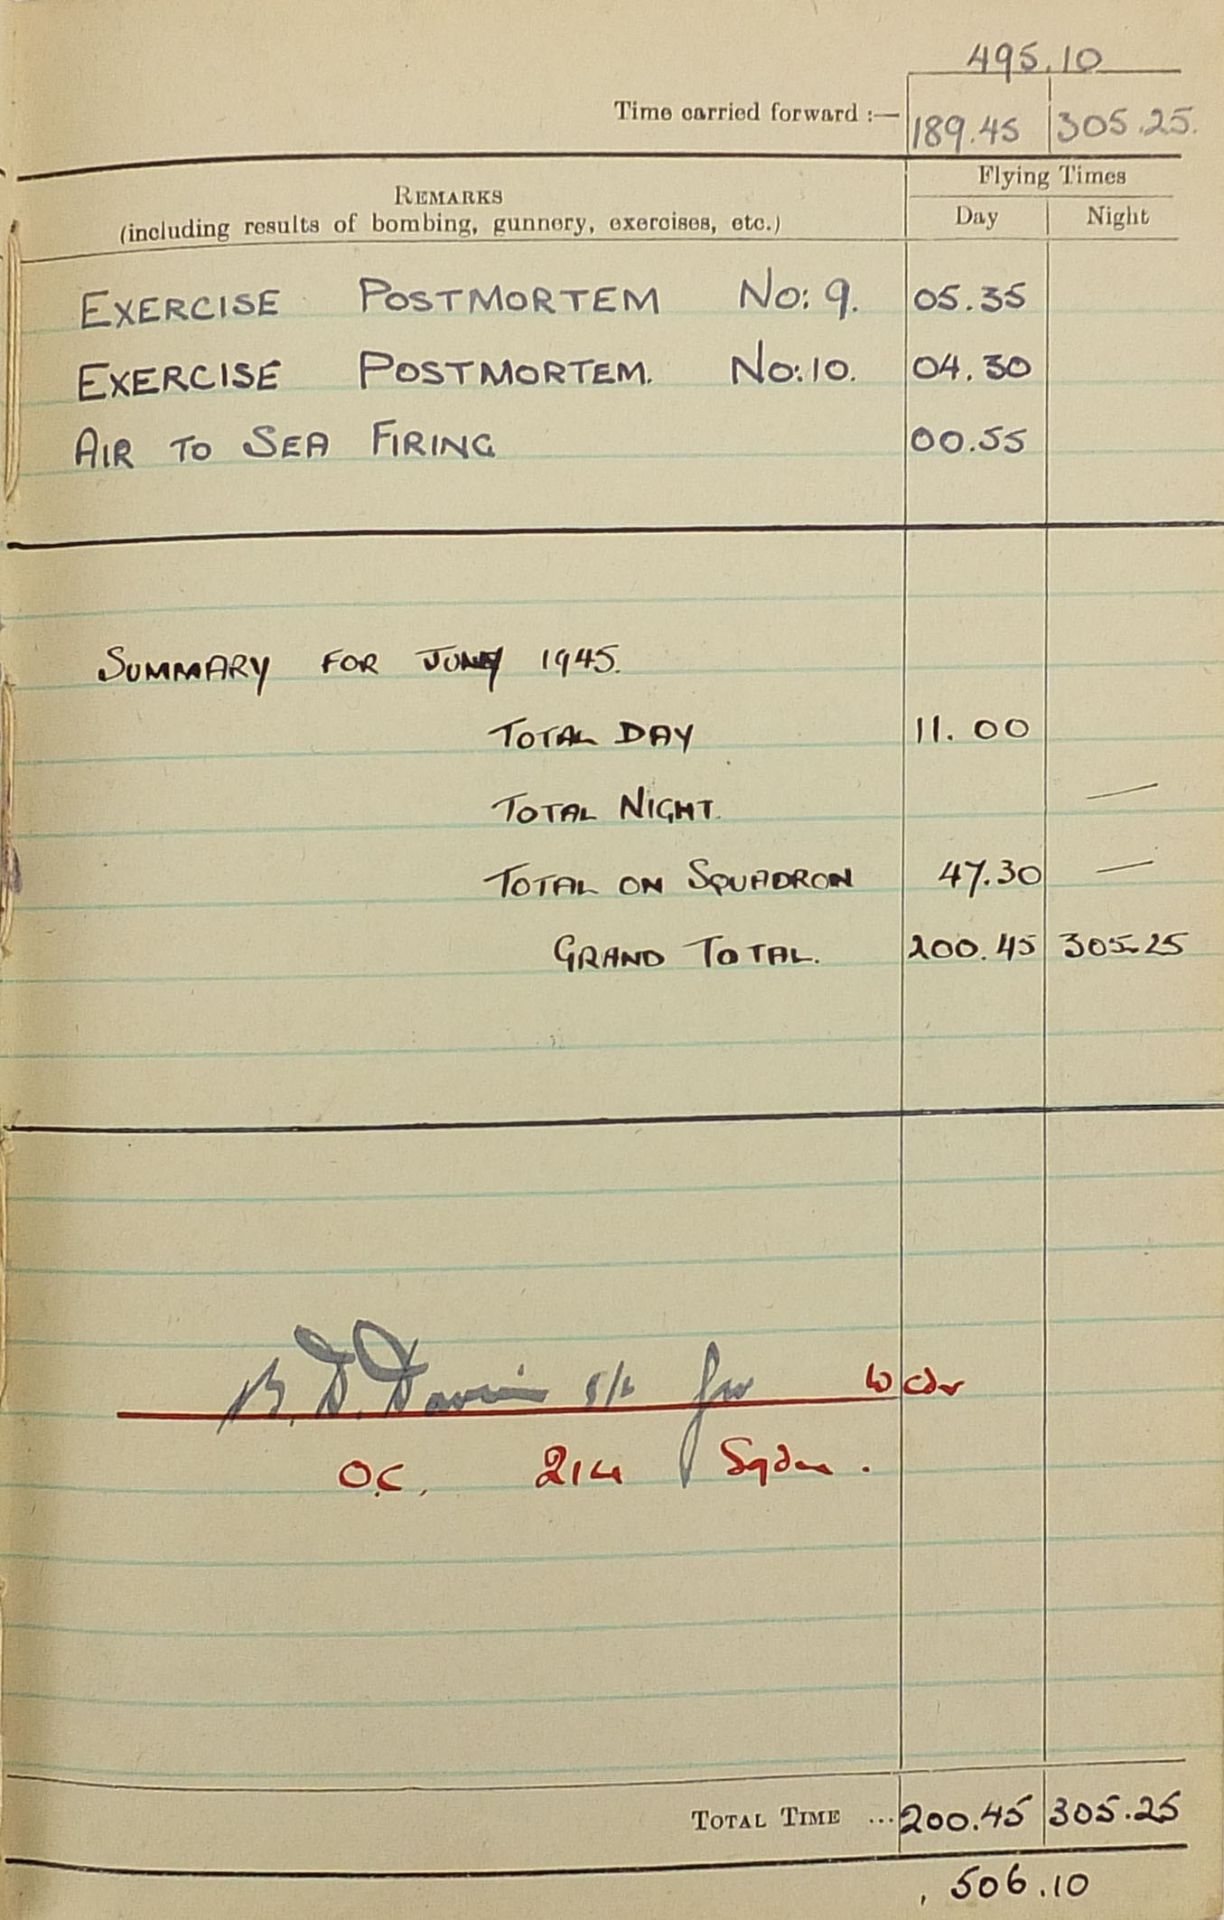 495.10
Time carried forward :— 189.45 305.25.
REMARKS
(including results of bombing, gunnery, exercises, etc.)
Flying Times
Day Night
EXERCISE POSTMORTEM No: 9. 05.35
EXERCISE POSTMORTEM. No:10. 04.30
AIR TO SEA FIRING 00.55
SUMMARY FOR JULY 1945.
TOTAL DAY 11.00
TOTAL NIGHT. —
TOTAL ON SQUADRON 47.30 —
GRAND TOTAL. 200.45 305.25
B. D. Davies S/L for W Cdr
O.C. 214 Sqdn.
TOTAL TIME ... 200.45 305.25
506.10